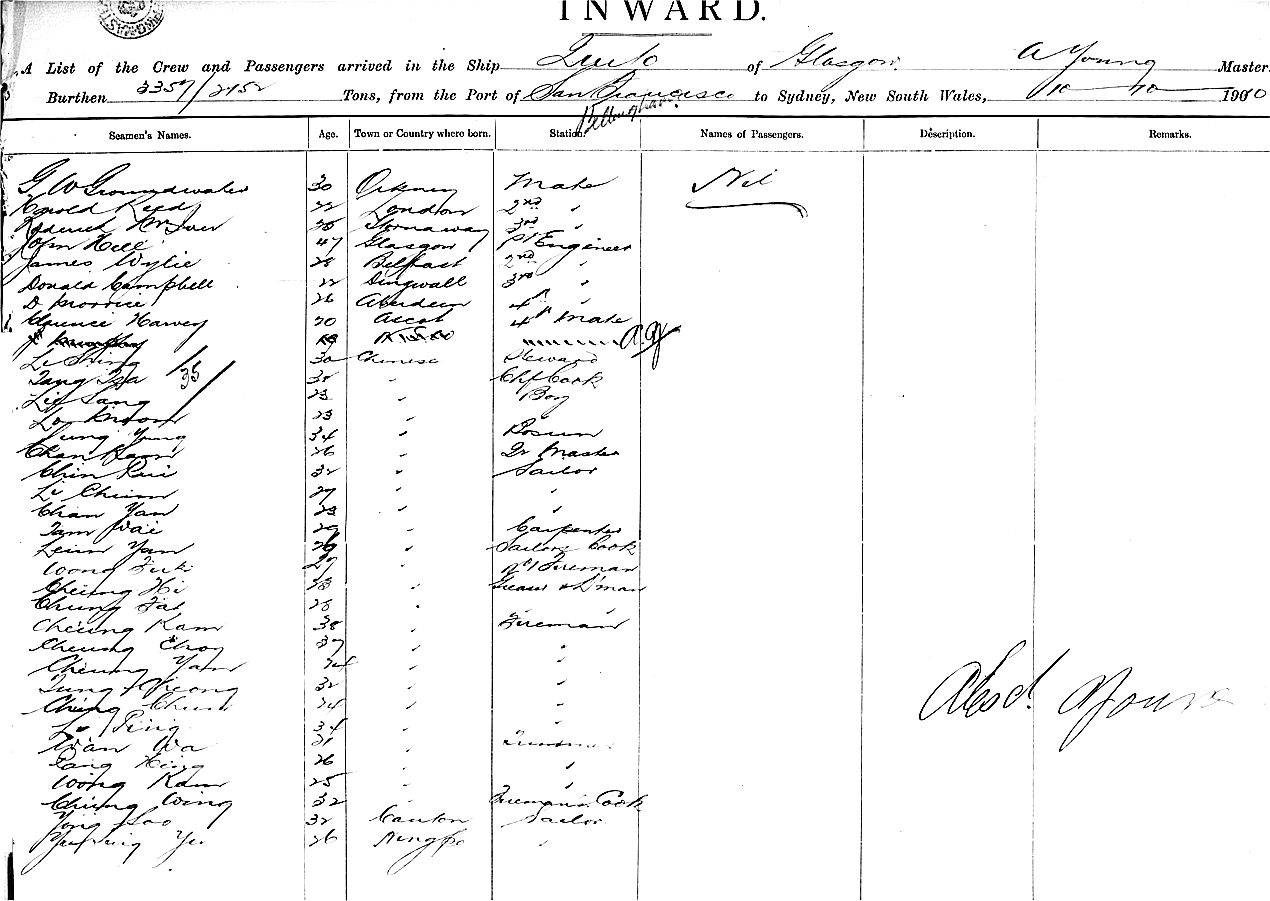 INWARD.
A List of the Crew and Passengers arrived in the Ship Quito of Glasgow. A Young Master
Burthen 3357/2152 Tons, from the Port of San Francisco to Sydney, New South Wales, 10 10 1900
Bellingham
Seamen's Names. Age. Town or Country where born. Station. Names of Passengers. Description. Remarks.
G W Groundwater 30 Orkney Mate Nil
Harold Reed 22 London 2nd "
Roderick McIver 28 Stornaway 3rd "
John Hill 47 Glasgow 1st Engineer
James Wylie 28 Belfast 2nd "
Donald Campbell 22 Dingwall 3rd "
D Morrice 26 Aberdeen 4th "
Clarence Harvey 20 Ascot 4th Mate
A.Y
Li Shing 30 Chinese Steward
Tang Tsa 35 32 " Chf Cook
Lie Sang 23 " Boy
Lo Moon 23 " "
Sung Yung 34 " Bosun
Chan Kam 26 " Qr Master
Chin Kui 32 " Sailor
Li Chum 27 " "
Chan Yan 23 " "
Tam Wai 29 " Carpenter
Leim Yam 29 " Sailors Cook
Wong Fuk 27 " No 1 Fireman
Cheung Hi 28 " Greaser & D'man
Chung Fat 28 " "
Cheung Kam 38 " Fireman
Cheung Choy 37 " "
Cheung Yam 24 " "
Tung Cheong 32 " "
Ching Chun 24 " "
Lo Ping 34 " "
Wan Wa 31 " Fireman
Pang Hing 26 " "
Wong Kam 25 " "
Chung Wing 32 " Fireman's Cook
Yong Soo 32 Canton Sailor
Yu 26 Ningpo "
Alexd. Young